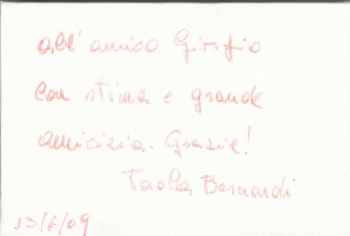 all'amico Giorgio
con stima e grande
amicizia. Grazie!
Paola Bernardi
13/6/09